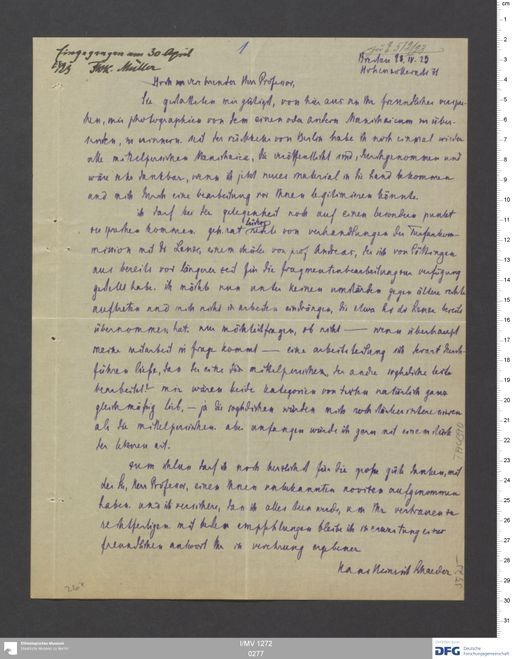 Eingegangen am 30 April
F.W.K. Müller
1
Breslau 28.IV.23
Hohenzollernstr 71
Hochzuverehrender Herr Professor,
Sie gestatteten mir gütigst, von hier aus an Ihr freundliches verspre-
chen, mir photographien von dem einen oder andern Manichaicum zu über-
senden, zu erinnern. seit der rückkehr von Berlin habe ich noch einmal wieder
alle mittelpersischen Manichaica, die veröffentlicht sind, durchgenommen und
wäre nun dankbar, wenn ich jetzt neues material in die hand bekommen
und mich durch eine bearbeitung vor Ihnen legitimieren könnte.
ich darf bei der gelegenheit noch auf einen besondern punkt
zu sprechen kommen. gehört von verhandlungen der Turfankom-
mission mit Dr Lentz, einem schüler von prof Andreas, der sich von Göttingen
aus bereits vor längerer zeit für die fragmentenbearbeitung zur verfügung
gestellt habe. ich möchte nun unter keinen umständen gegen ältere rechte
auftreten und mich nicht in arbeiten eindrängen, die etwa
übernommen hat. nur möcht ich fragen, ob nicht — wenn überhaupt
meine mitarbeit in frage kommt — eine arbeitsteilung sich derart durch-
führen liesse, dass der eine die mittelpersischen, der andre soghdische texte
bearbeitet? mir wären beide kategorien von texten natürlich ganz
gleichmäßig lieb, — ja die soghdischen würden mich noch stärker interessieren
als die mittelpersischen. aber anfangen würde ich gern mit einem stück
der letzteren art.
zum schluss darf ich noch herzlichst für die große güte danken, mit
der Sie, Herr Professor, einen Ihnen unbekannten novizen aufgenommen
haben. und ich versichere, dass ich alles tun werde, um Ihr vertrauen zu
rechtfertigen. mit besten empfehlungen bleibe ich in erwartung einer
freundlichen antwort Ihr in verehrung ergebener
Hans Heinrich Schaeder
I/MV 1272
0277
Ethnologisches Museum
Staatliche Museen zu Berlin
DFG
Deutsche
Forschungsgemeinschaft